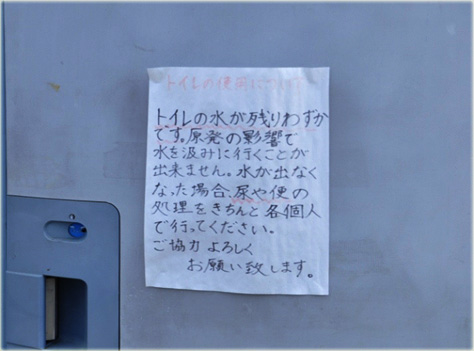 トイレの使用について
トイレの水が残りわずか
です。原発の影響で
水を汲みに行くことが
出来ません。水が出なく
なった場合、尿や便の
処理をきちんと各個人
で行ってください。
ご協力よろしく
お願い致します。